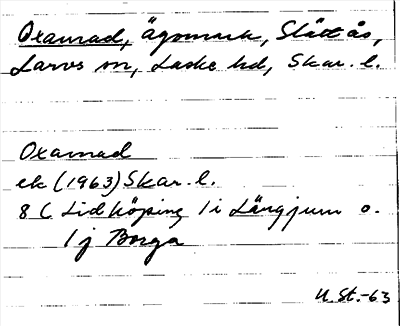 Oxamad, Ägomark, Slättås,
Larvs sn, Laske hd, Skar. l.
Oxamad
ek (1963) Skar. l.
8 C Lidköping 1 i Längjum o.
1 jBorga
U. St. -63